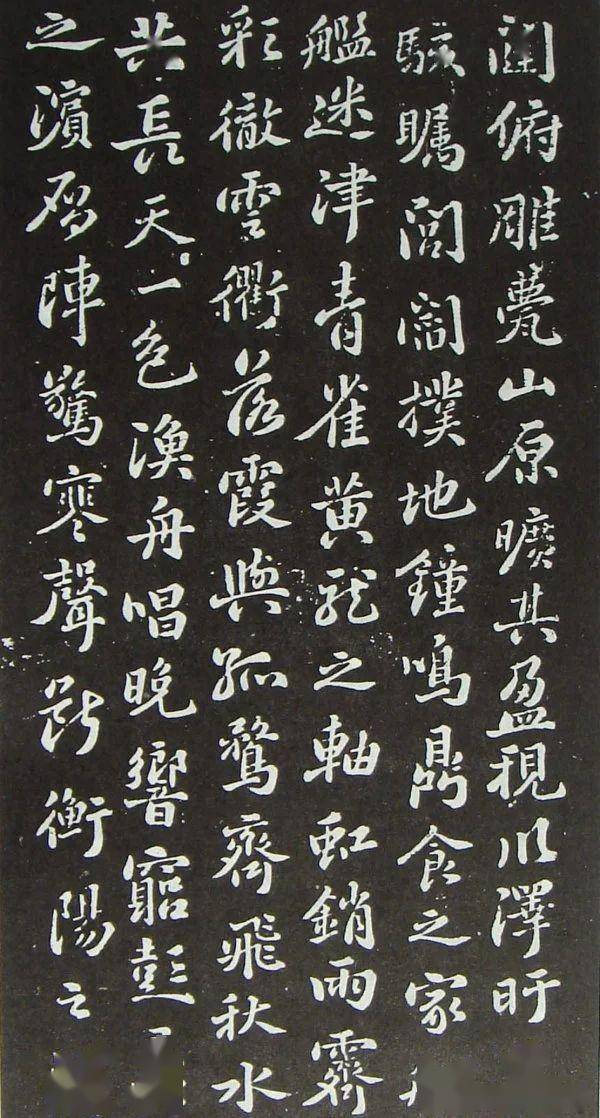 闥俯雕甍山原曠其盈視川澤盱
駭矚閭閻撲地鐘鳴鼎食之家
艦迷津青雀黃龍之軸虹銷雨霽
彩徹雲衢落霞與孤鶩齊飛秋水
共長天一色漁舟唱晚響窮彭
之濱雁陣驚寒聲斷衡陽之